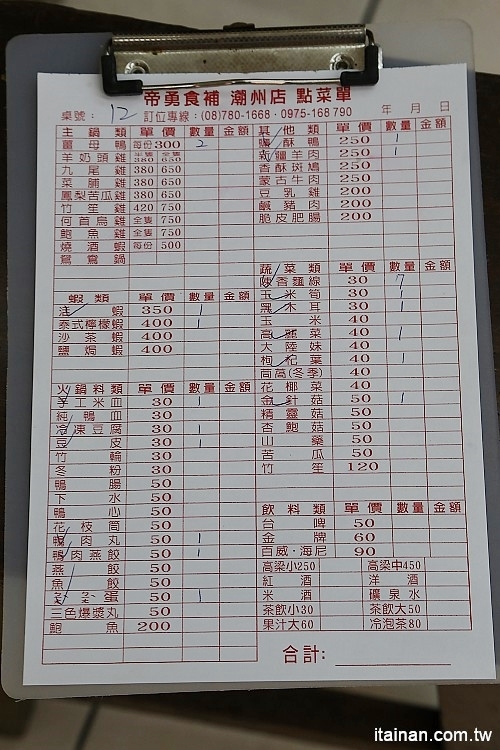 帝勇食補 潮州店 點菜單
桌號：12 訂位專線：(08)780-1668・0975-168790 年 月 日
主鍋類 單價 數量 金額
薑母鴨 每份300 2
羊奶頭雞 半隻380 全隻650
九尾雞 380 650
菜脯雞 380 650
鳳梨苦瓜雞 380 650
竹笙雞 420 750
何首烏雞 全隻750
鮑魚雞 全隻750
燒酒蝦 每份500
鴛鴦鍋
蝦類 單價 數量 金額
蝦 350 1
泰式檸檬蝦 400 1
沙茶蝦 400
鹽焗蝦 400
火鍋料類 單價 數量 金額
手工米血 30 1
純鴨血 30
冷凍豆腐 30 1
豆皮 30 1
竹輪 30
冬粉 30
鴨腸 50
下水 50
鴨心 50
花枝筒 50
鴨肉丸 50 1
鴨肉燕餃 50 1
燕餃 50
魚餃 50
蛋 50 1
三色爆漿丸 50
鮑魚 200
其他類 單價 數量 金額
酥鴨 250 1
新疆羊肉 250 1
香酥斑鳩 250
蒙古牛肉 250
豆乳雞 200
鹹豬肉 200
脆皮肥腸 200
蔬菜類 單價 數量 金額
麻香麵線 30 7
玉米筍 30 1
黑木耳 30 1
玉米 40
高麗菜 40 1
大陸妹 40
枸杞葉 40 1
茼萵(冬季) 40
花椰菜 40
金針菇 50 1
精靈菇 50
杏鮑菇 50
山藥 50
苦瓜 50
竹笙 120
飲料類 單價 數量 金額
台啤 50
金牌 60
百威・海尼 90
高梁小250 高梁中450
紅酒 洋酒
米酒 礦泉水
茶飲小30 茶飲大50
果汁大60 冷泡茶80
合計：
itainan.com.tw